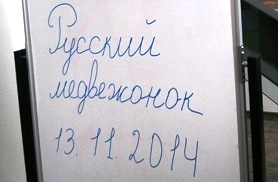 Русский
медвежонок
13.11.2014